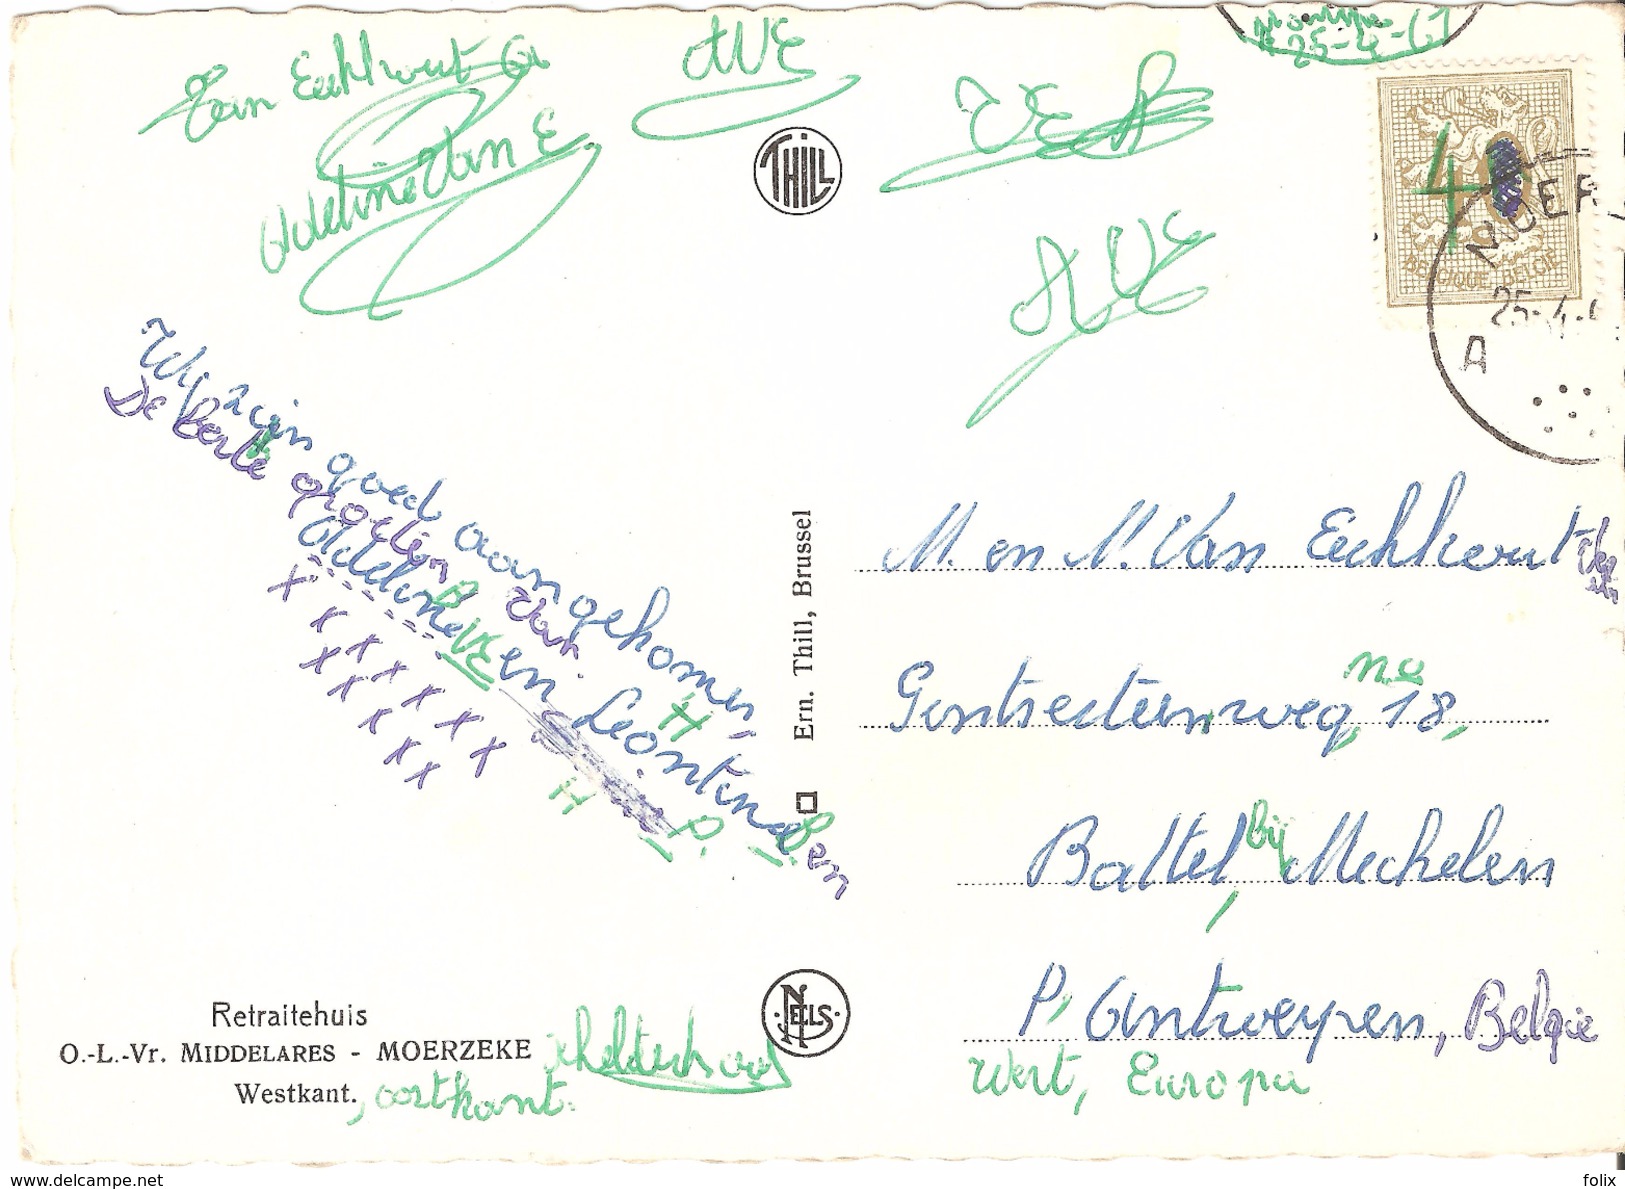 Van Eeckhout
AVE
VE A
25-4-61
THILL
Adeline Van E
AVE
40
BELGIQUE BELGIE
MOER
25-4-6
A
Wij zijn goed aangekomen,
De beste groeten van
Adeline VE en Leontine B. en
x x x x x x x
x x x x x
H
H P.
Ern. Thill, Brussel
M. en M. Van Eeckhout
Gentsesteenweg, no 18,
Battel, bij Mechelen
P. Antwerpen, België
West, Europa
NELLS
Retraitehuis
O.-L.-Vr. MIDDELARES - MOERZEKE
Westkant. , oostkant.
www.delcampe.net
folix